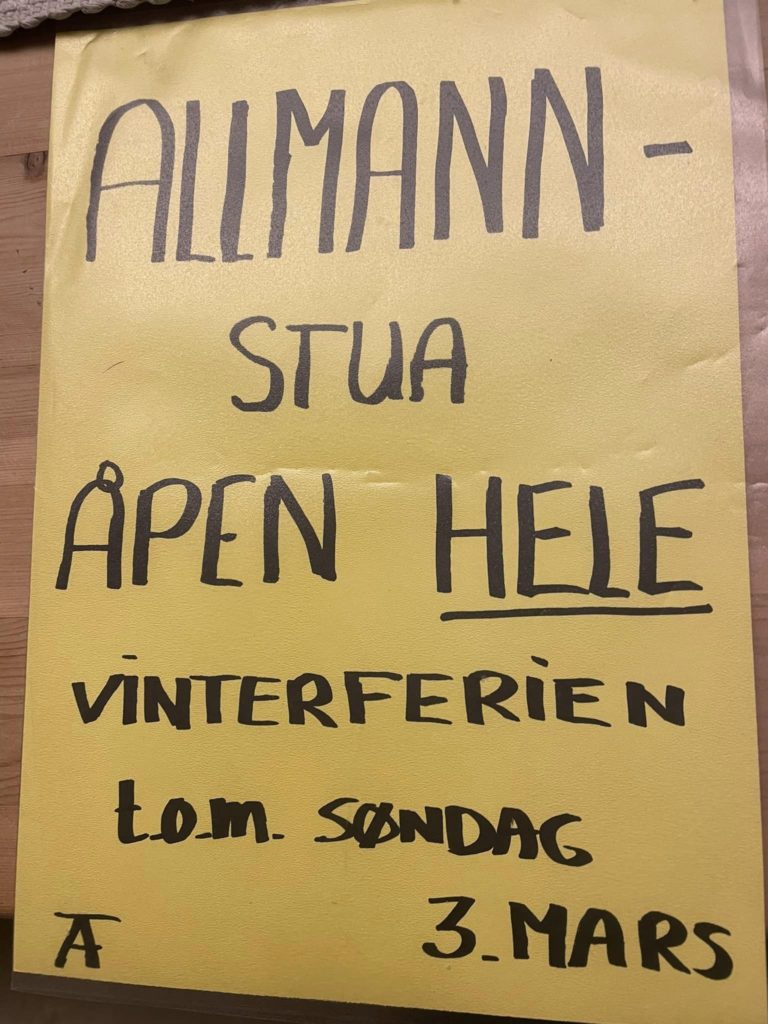 ALLMANN-
STUA
ÅPEN HELE
VINTERFERIEN
t.o.m. SØNDAG
3. MARS